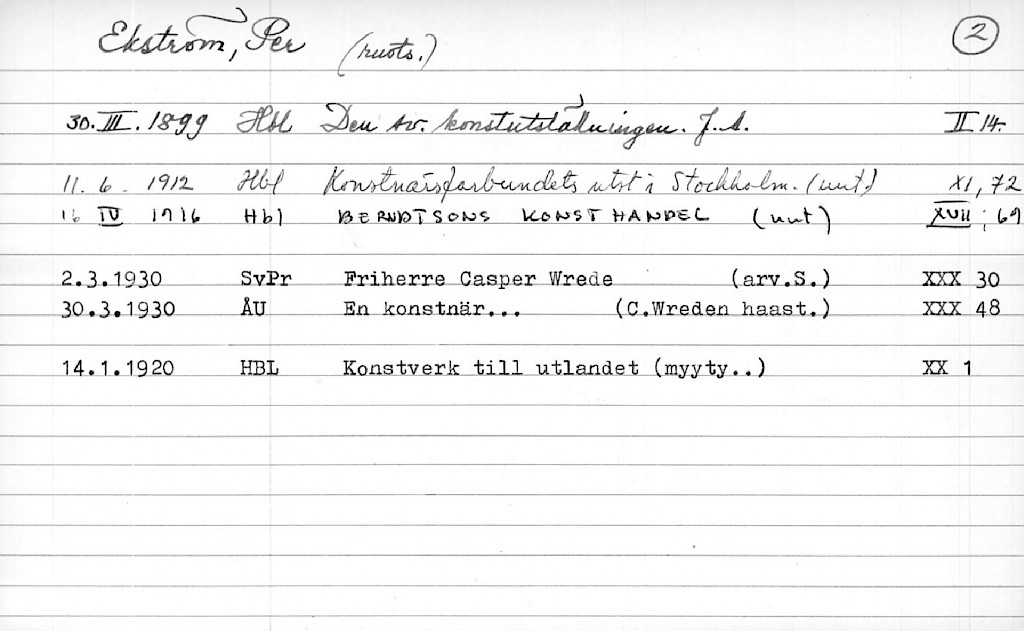 Ekström, Per (ruots.) 2
30.III.1899 Hbl Den sv. konstutställningen. J.A. II 14.
11. 6. 1912 Hbl Konstnärsförbundets utst i Stockholm. (uut) XI, 72
16 IV 1916 Hbl BERNDTSONS KONSTHANDEL (uut) XVII; 69
2.3.1930 SvPr Friherre Casper Wrede (arv.S.) XXX 30
30.3.1930 ÅU En konstnär... (C.Wreden haast.) XXX 48
14.1.1920 HBL Konstverk till utlandet (myyty..) XX 1